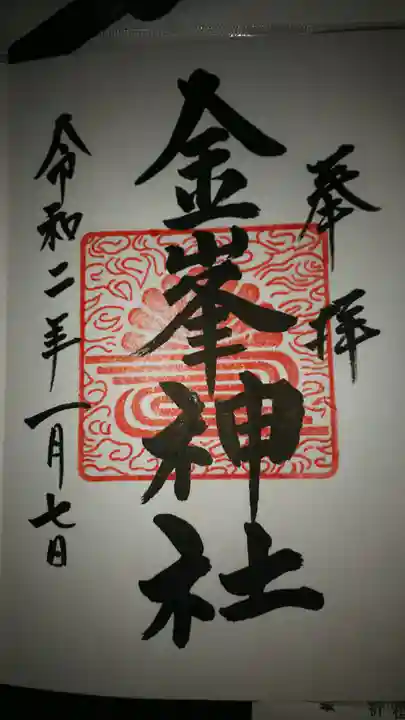 奉拝
金峯神社
令和二年一月七日